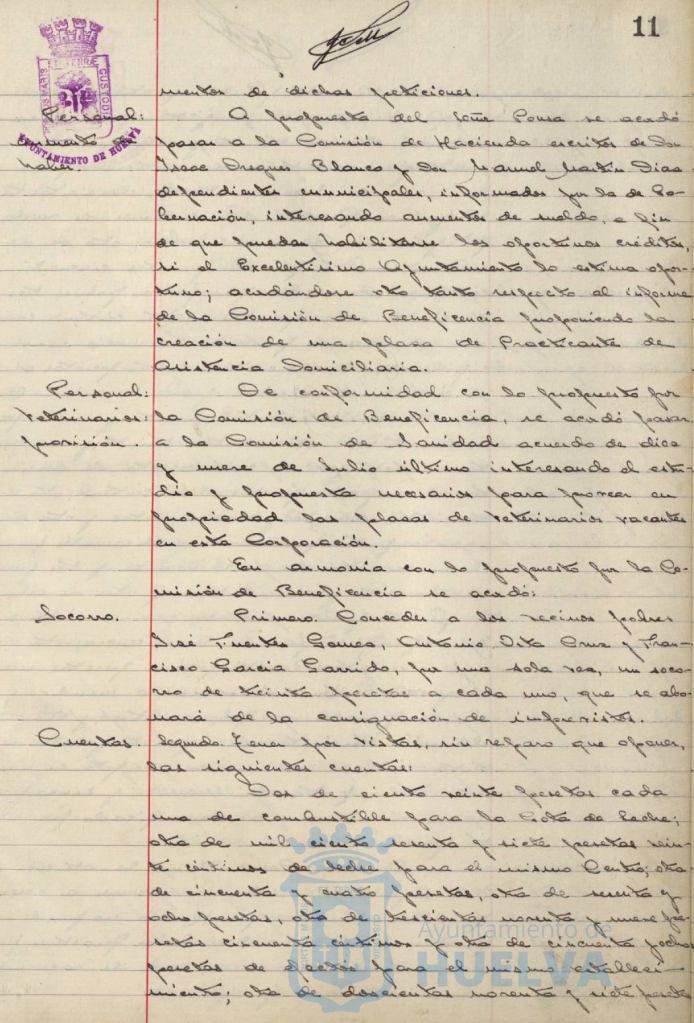 11
mentos de dichas peticiones.
Personal:
aumento de
haber.
A propuesta del Señor Ponsa se acordó
pasar a la Comisión de Hacienda escritos de Don
Isaac Blanco y Don Manuel Martín Dias
dependientes municipales, informados por la de Go-
bernación, interesando aumentos de sueldo, a fin
de que puedan habilitarse los oportunos créditos,
si el Excelentísimo Ayuntamiento lo estima opor-
tuno; acordándose otro tanto respecto al informe
de la Comisión de Beneficencia proponiendo la
creación de una plasa de Practicante de
Asistencia Domiciliaria.
Personal:
Veterinarios:
provisión.
De conformidad con lo propuesto por
la Comisión de Beneficencia, se acordó pasar
a la Comisión de Sanidad acuerdo de dies
y nueve de Julio último interesando el estu-
dio y propuesta necesarios para proveer en
propiedad las plasas de veterinarios vacantes
en esta Corporación.
En armonía con lo propuesto por la Co-
misión de Beneficencia se acordó:
Socorro.
Primero. Conceder a los vecinos pobres
José Fuentes Gomes, Antonio Vita Cruz y Fran-
cisco Garcia Garrido, por una sola ves, un soco-
rro de treinta pesetas a cada uno, que se abo-
nará de la consignación de imprevistos.
Cuentas.
Segundo. Tener por vistas, sin reparo que oponer,
las siguientes cuentas:
Dos de ciento veinte pesetas cada
una de combustible para la Gota de Leche;
otra de mil ciento sesenta y siete pesetas vein-
te céntimos de leche para el mismo Centro; otra
de cincuenta y cuatro pesetas, otra de sesenta y
ocho pesetas, otra de trescientas noventa y nueve pe-
setas cincuenta céntimos y otra de cincuenta y ocho
pesetas de efectos para el mismo estableci-
miento; otra de doscientas noventa y siete pesetas
AYUNTAMIENTO DE HUELVA
Ayuntamiento de
HUELVA